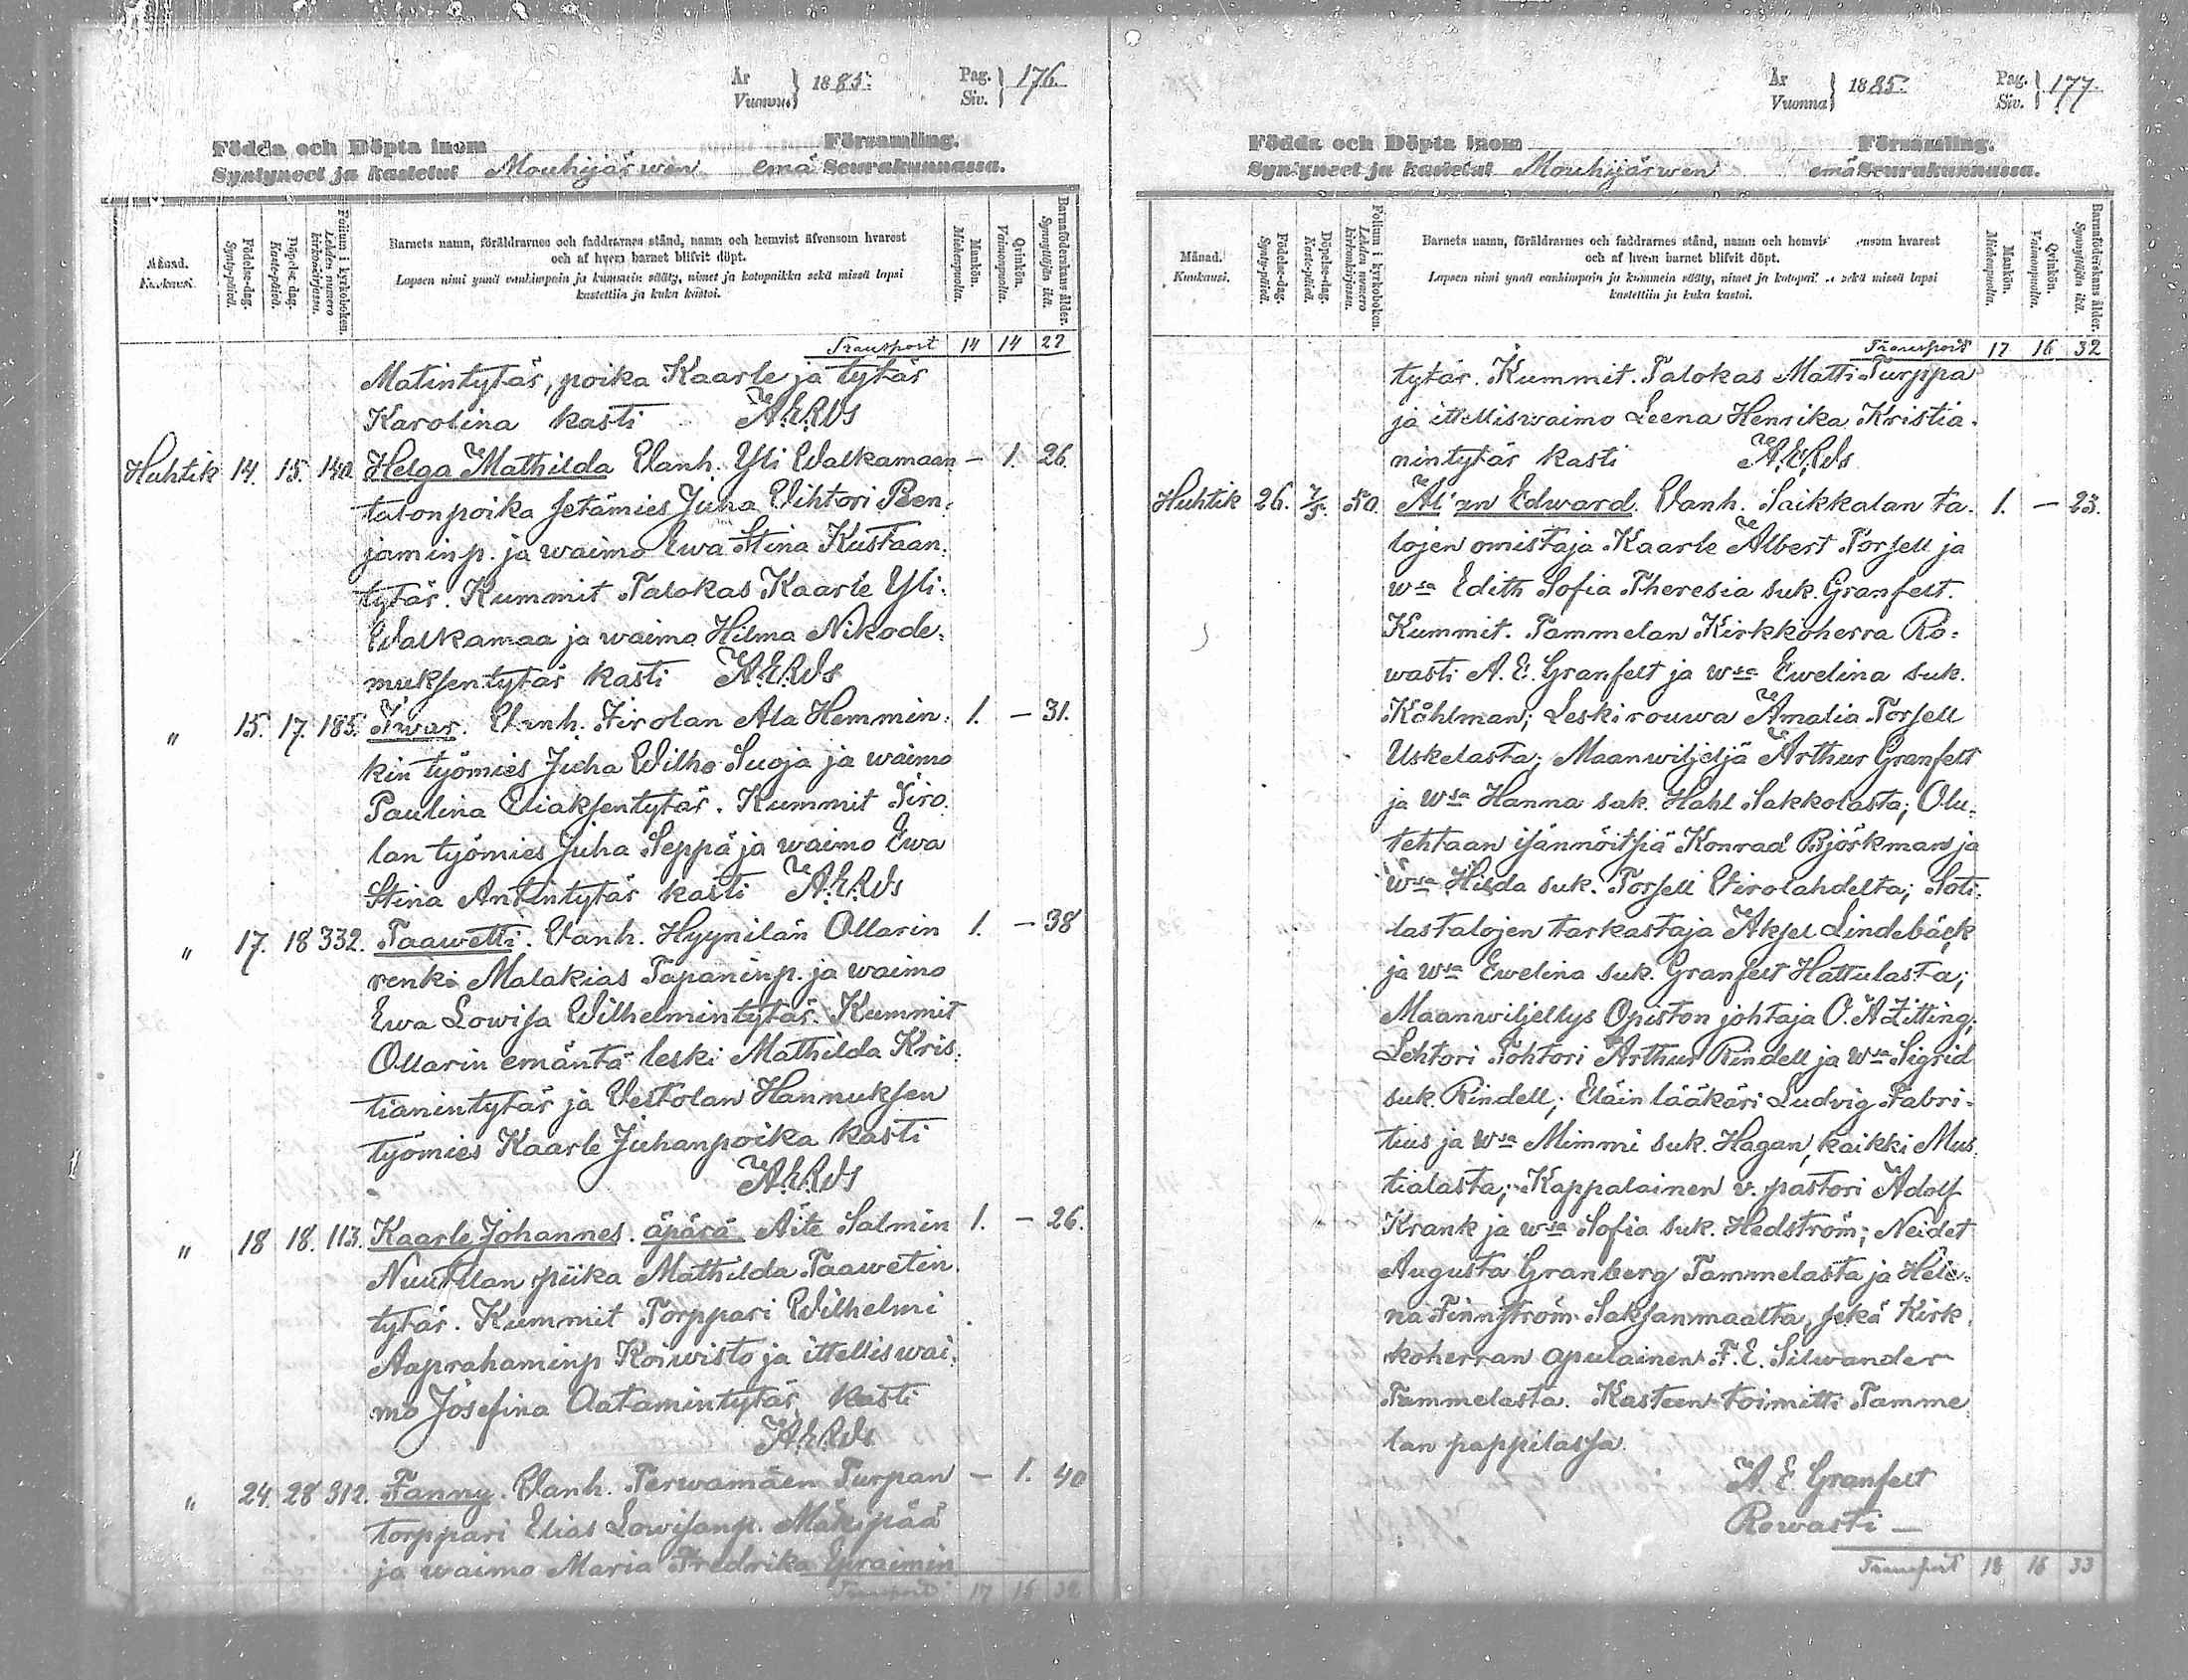 År
Vuonna } 1885. Pag.
Siv. } 176.
Födda och Döpta inom Församling.
Syntyneet ja kastetut Mouhijärwen emä Seurakunnassa.
Månad.
Kuukausi.
Födelse-dag.
Synty-päivä.
Döpelse-dag.
Kaste-päivä.
Folium i kyrkoboken.
Lehden numero
kirkonkirjassa.
Barnets namn, föräldrarnes och faddrarnes stånd, namn och hemvist äfvensom hvarest
och af hvem barnet blifvit döpt.
Lapsen nimi ynnä vanhimpain ja kummein sääty, nimet ja kotopaikka sekä missä lapsi
kastettiin ja kuka kastoi.
Mankön.
Miehenpuolta.
Qvinkön.
Vaimonpuolta.
Barnaföderskans ålder.
Synnyttäjän ikä.
Transport 14 14 27
Matintytär, poika Kaarle ja tytär
Karolina kasti
Huhtik 14. 15. 140. Helga Mathilda Vanh. Yli Walkamaan – 1. 26.
talonpoika setämies Juha Vihtori Ben-
jaminp. ja waimo Ewa Stina Kustaan-
tytär. Kummit Talokas Kaarle Yli-
Walkamaa ja waimo Hilma Nikode-
muksentytär kasti
„ 15. 17. 185. Iwar. Vanh. Tirolan Ala Hemmin- 1. – 31.
kin työmies Juha Wilho Suoja ja waimo
Paulina Eliaksentytär. Kummit Tiro-
lan työmies Juha Seppä ja waimo Ewa
Stina Antintytär kasti
„ 17. 18 332. Taawetti. Vanh. Hyynilän Ollarin 1. – 38
renki Malakias Tapaninp. ja waimo
Ewa Lowisa Wilhelmintytär. Kummit
Ollarin emäntä leski Mathilda Kris-
tianintytär ja Vestolan Hannuksen
työmies Kaarle Juhanpoika kasti
„ 18 18. 113. Kaarle Johannes. äpärä Äite Salmin 1. – 26.
Nuutilan piika Mathilda Taawetin-
tytär. Kummit Torppari Wilhelmi
Aaprahaminp Koiwisto ja ittelliswai-
mo Josefina Aatamintytär kasti
„ 24. 28 312. Fanny. Vanh. Terwamäen Turpan – 1. 40
torppari Elias Lowisanp. Mäkipää
ja waimo Maria Fredrika Epraimin
Transport 17 16 32
År
Vuonna } 1885. Pag.
Siv. } 177.
Födda och Döpta inom Församling.
Syntyneet ja kastetut Mouhijärwen emä Seurakunnassa.
Månad.
Kuukausi.
Födelse-dag.
Synty-päivä.
Döpelse-dag.
Kaste-päivä.
Folium i kyrkoboken.
Lehden numero
kirkonkirjassa.
Barnets namn, föräldrarnes och faddrarnes stånd, namn och hemvis ensom hvarest
och af hvem barnet blifvit döpt.
Lapsen nimi ynnä vanhimpain ja kummein sääty, nimet ja kotopai sekä missä lapsi
kastettiin ja kuka kastoi.
Mankön.
Miehenpuolta.
Qvinkön.
Vaimonpuolta.
Barnaföderskans ålder.
Synnyttäjän ikä.
Transport 17 16 32
tytär. Kummit. Talokas Matti Turppa
ja ittelliswaimo Leena Henrika Kristia-
nintytär kasti
Huhtik 26. 7/5. 50. Edward. Vanh. Saikkalan ta- 1. – 23.
lojen omistaja Kaarle Albert Forsell ja
wsa Edith Sofia Theresia suk. Granfelt.
Kummit. Tammelan Kirkkoherra Ro-
wasti A. E. Granfelt ja wsa Ewelina suk.
Kåhlman; Leskirouwa Amalia Forsell
Uskelasta; Maanwiljeljä Arthur Granfelt
ja wsa Hanna suk. Hahl Sakkolasta; Olu-
tehtaan isännöitsiä Konrad Björkman ja
wsa Hilda suk. Forsell Virolahdelta; Soti-
lastalojen tarkastaja Aksel Lindebäck
ja wsa Ewelina suk. Granfelt Hattulasta;
Maanwiljellys Opiston johtaja O. A Zitting;
Lehtori Tohtori Arthur Rindell ja wsa Sigrid
suk. Rindell; Eläin lääkäri Ludvig Fabri-
tius ja wsa Mimmi suk. Hagan, kaikki Mus-
tialasta; Kappalainen v. pastori Adolf
Krank ja wsa Sofia suk. Hedström; Neidet
Augusta Granberg Tammelasta ja Hele-
na Finnström Saksanmaalta, sekä Kirk-
koherran apulainen F. E. Silwander
Tammelasta. Kasteen toimitti Tamme
lan pappilassa
A. E. Granfelt
Rowasti –
Transport 18 16 33